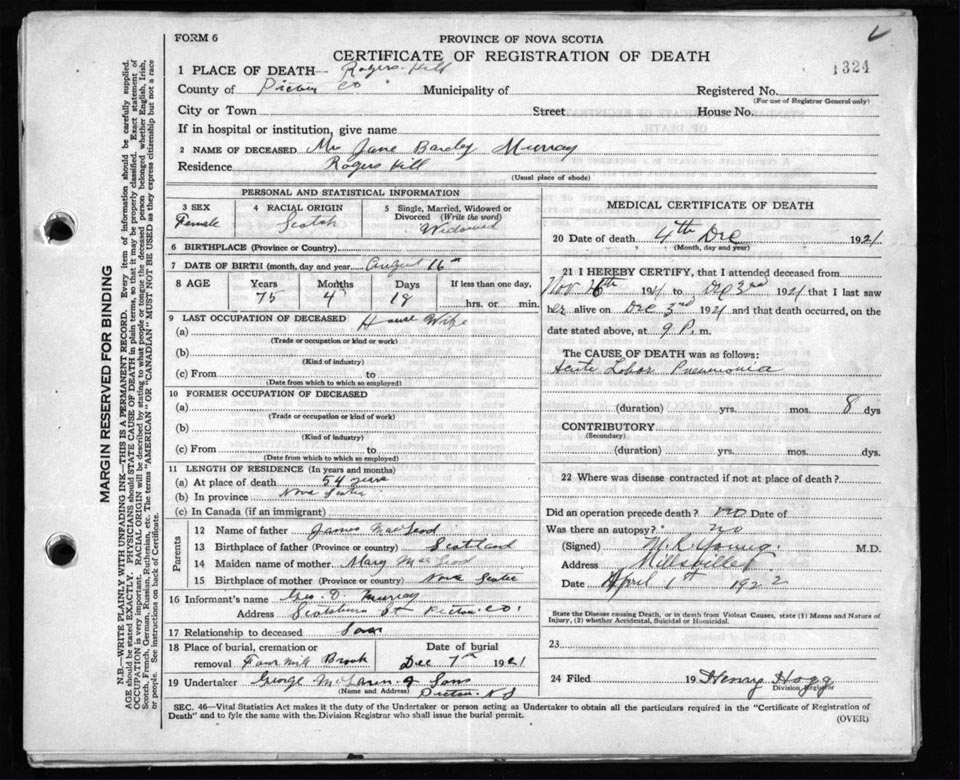 FORM 6
PROVINCE OF NOVA SCOTIA
CERTIFICATE OF REGISTRATION OF DEATH
1324
1 PLACE OF DEATH— Rogers Hill
County of Pictou Co Municipality of Registered No.
(For use of Registrar General only)
City or Town Street House No.
If in hospital or institution, give name
2 NAME OF DECEASED Mrs Jane Murray
Residence Rogers Hill
(Usual place of abode)
PERSONAL AND STATISTICAL INFORMATION
3 SEX Female
4 RACIAL ORIGIN Scotch
5 Single, Married, Widowed or Divorced (Write the word) Widowed
6 BIRTHPLACE (Province or Country)
7 DATE OF BIRTH (month, day and year August 16th
8 AGE Years 75 Months 4 Days 18 If less than one day, hrs. or min.
9 LAST OCCUPATION OF DECEASED House Wife
(a)
(Trade or occupation or kind or work)
(b)
(Kind of industry)
(c) From to
(Date from which to which so employed)
10 FORMER OCCUPATION OF DECEASED
(a)
(Trade or occupation or kind of work)
(b)
(Kind of industry)
(c) From to
(Date from which to which so employed)
11 LENGTH OF RESIDENCE (In years and months)
(a) At place of death 54 years
(b) In province Nova Scotia
(c) In Canada (if an immigrant)
Parents
12 Name of father James MacLeod
13 Birthplace of father (Province or country) Scotland
14 Maiden name of mother Mary MacLeod
15 Birthplace of mother (Province or country) Nova Scotia
16 Informant's name Geo. D. Murray
Address Scotsburn Pictou Co.
17 Relationship to deceased Son
18 Place of burial, cremation or removal Four Mile Brook
Date of burial Dec 7th 1921
19 Undertaker George & Sons
(Name and Address) Pictou N S
MEDICAL CERTIFICATE OF DEATH
20 Date of death 4th Dec 1921
(Month, day and year)
21 I HEREBY CERTIFY, that I attended deceased from
Nov 1921 to Dec 3rd 1921 that I last saw
her alive on Dec 3rd 1921 and that death occurred, on the
date stated above, at 9 P. m.
The CAUSE OF DEATH was as follows:
Acute Lobar Pneumonia
(duration) yrs. mos. 8 dys
CONTRIBUTORY
(Secondary)
(duration) yrs. mos. dys.
22 Where was disease contracted if not at place of death?
Did an operation precede death? no Date of
Was there an autopsy? no
(Signed) M. R. Young M.D.
Address Millsville
Date April 1st 1922
State the Disease causing Death, or in death from Violent Causes, state (1) Means and Nature of
Injury, (2) whether Accidental, Suicidal or Homicidal.
23
24 Filed 19 Henry Hogg
Division Registrar
SEC. 46—Vital Statistics Act makes it the duty of the Undertaker or person acting as Undertaker to obtain all the particulars required in the "Certificate of Registration of
Death" and to fyle the same with the Division Registrar who shall issue the burial permit.
(OVER)
MARGIN RESERVED FOR BINDING
N.B.—WRITE PLAINLY WITH UNFADING INK—THIS IS A PERMANENT RECORD. Every item of information should be carefully supplied.
AGE should be stated EXACTLY. PHYSICIANS should STATE CAUSE OF DEATH in plain terms, so that it may be properly classified. Exact statement of
OCCUPATION is very important. RACIAL ORIGIN will be described by stating to what people or tongue the deceased person belonged whether English, Irish,
Scotch, French, German, Russian, Ruthenian, etc. The terms "AMERICAN" OR "CANADIAN" MUST NOT BE USED as they express citizenship but not a race
or people. See instructions on back of Certificate.